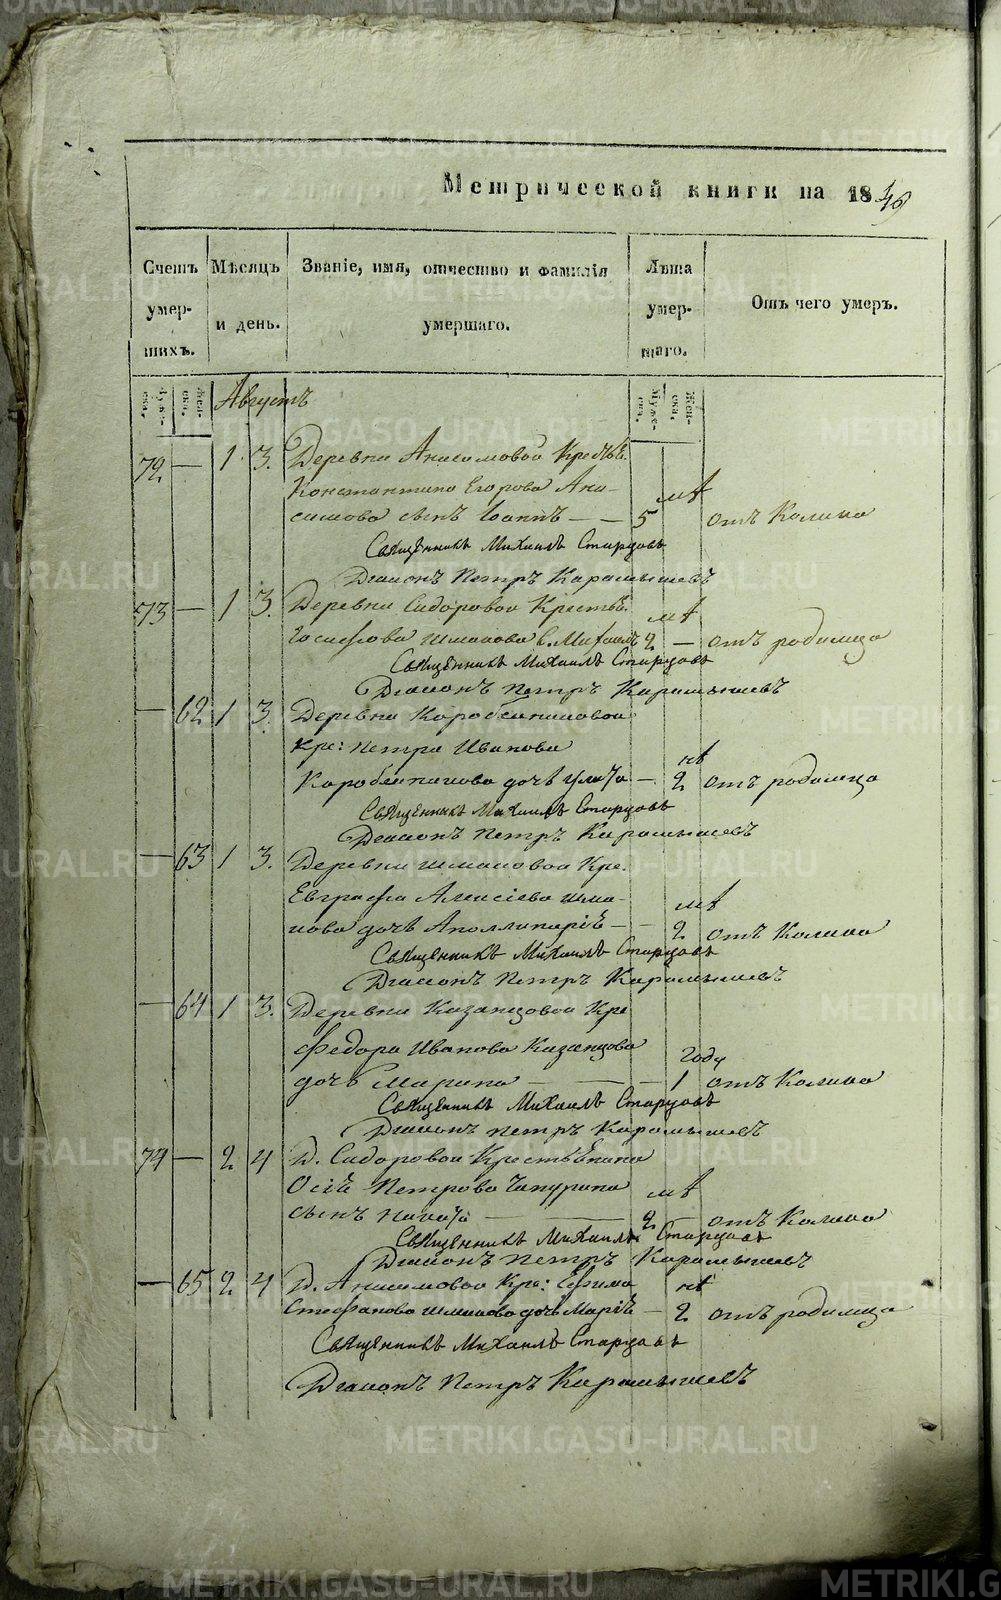 Метрической книги на 1846
Счетъ умершихъ.
Мѣсяцъ и день.
Званіе, имя, отчество и фамилія умершаго.
Лѣта умершаго.
Отъ чего умеръ.
Мужеска.
Женска.
Августъ
Мужеска.
Женска.
72 — 1 3. Деревни Анисимовой Крестьѣ:
Константина Егорова Ани-
симова сынъ Іоаннъ — — 5 мѣ отъ Колика
Священникъ Михаилъ Старцовъ
Діаконъ Петръ Карамышевъ
73 — 1 3. Деревни Сидоровой Крестьѣ:
Іосифова с. Михаилъ 2 мѣ — отъ родимца
Священникъ Михаилъ Старцовъ
Діаконъ Петръ Карамышевъ
— 62 1 3. Деревни Коробейниковой
Кре: Петра Иванова
Коробейникова дочь — 2 нѣ отъ родимца
Священникъ Михаилъ Старцовъ
Діаконъ Петръ Карамышевъ
— 63 1 3. Деревни Кре:
Евграфа Алексіева
нова дочь Аполлинарія — — 2 мѣ отъ Колика
Священникъ Михаилъ Старцовъ
Діаконъ Петръ Карамышевъ
— 64 1 3. Деревни Казанцовой Кре
Федора Иванова Казанцова
дочь Марина — — — 1 году отъ Колика
Священникъ Михаилъ Старцовъ
Діаконъ Петръ Карамышевъ
74 — 2 4 Д. Сидоровой Крестьянина
Осіи Петрова Чапурина
сынъ — 2 мѣ — отъ Колика
Священникъ Михаилъ Старцовъ
Діаконъ Петръ Карамышевъ
— 65 2 4 Д. Анисимовой Кре: Ефима
Стефанова дочь Марія — 2 нѣ отъ родимца
Священникъ Михаилъ Старцовъ
Діаконъ Петръ Карамышевъ
METRIKI.GASO-URAL.RU